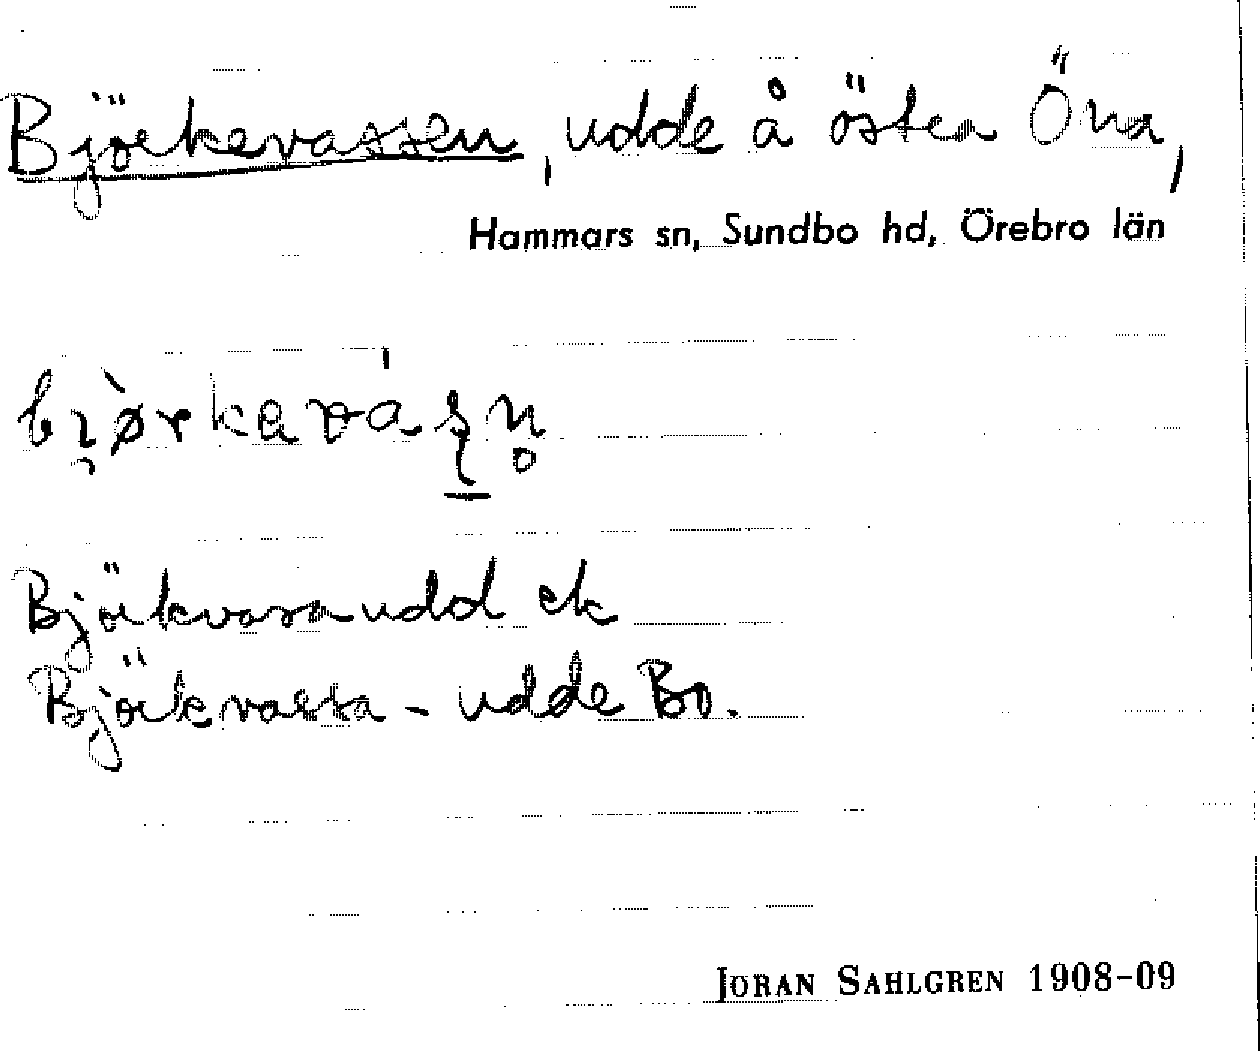 Björkevassen, udde å östra Öna,
Hammars sn, Sundbo hd, Örebro län
Björkvasaudd ek
Björkvassa - udde Bo.
JÖRAN SAHLGREN 1908-09